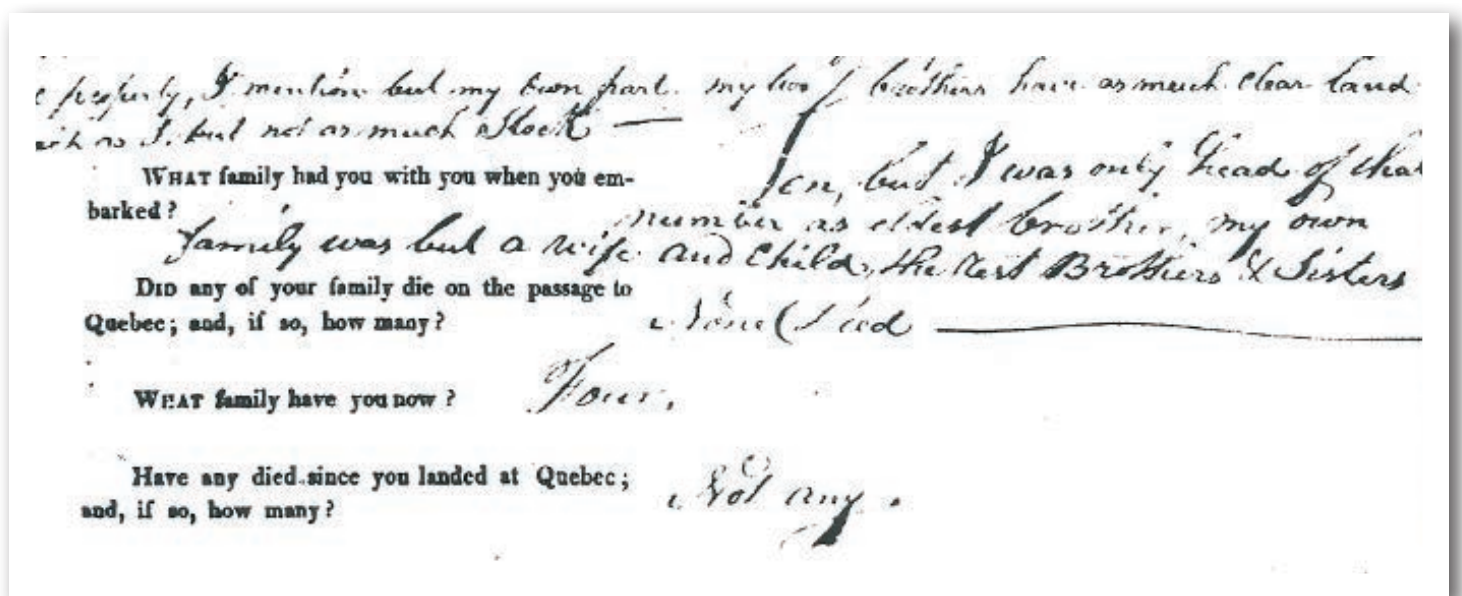 property, I mention but my own part. my two brothers have as much clear land
as I. but not as much Stock —
WHAT family had you with you when you em-
barked?
Ten, but I was only head of that
number as eldest brother, my own
family was but a wife and Child, the rest Brothers & Sisters
DID any of your family die on the passage to
Quebec; and, if so, how many?
None Died
WHAT family have you now?
Four.
Have any died since you landed at Quebec;
and, if so, how many?
Not any.